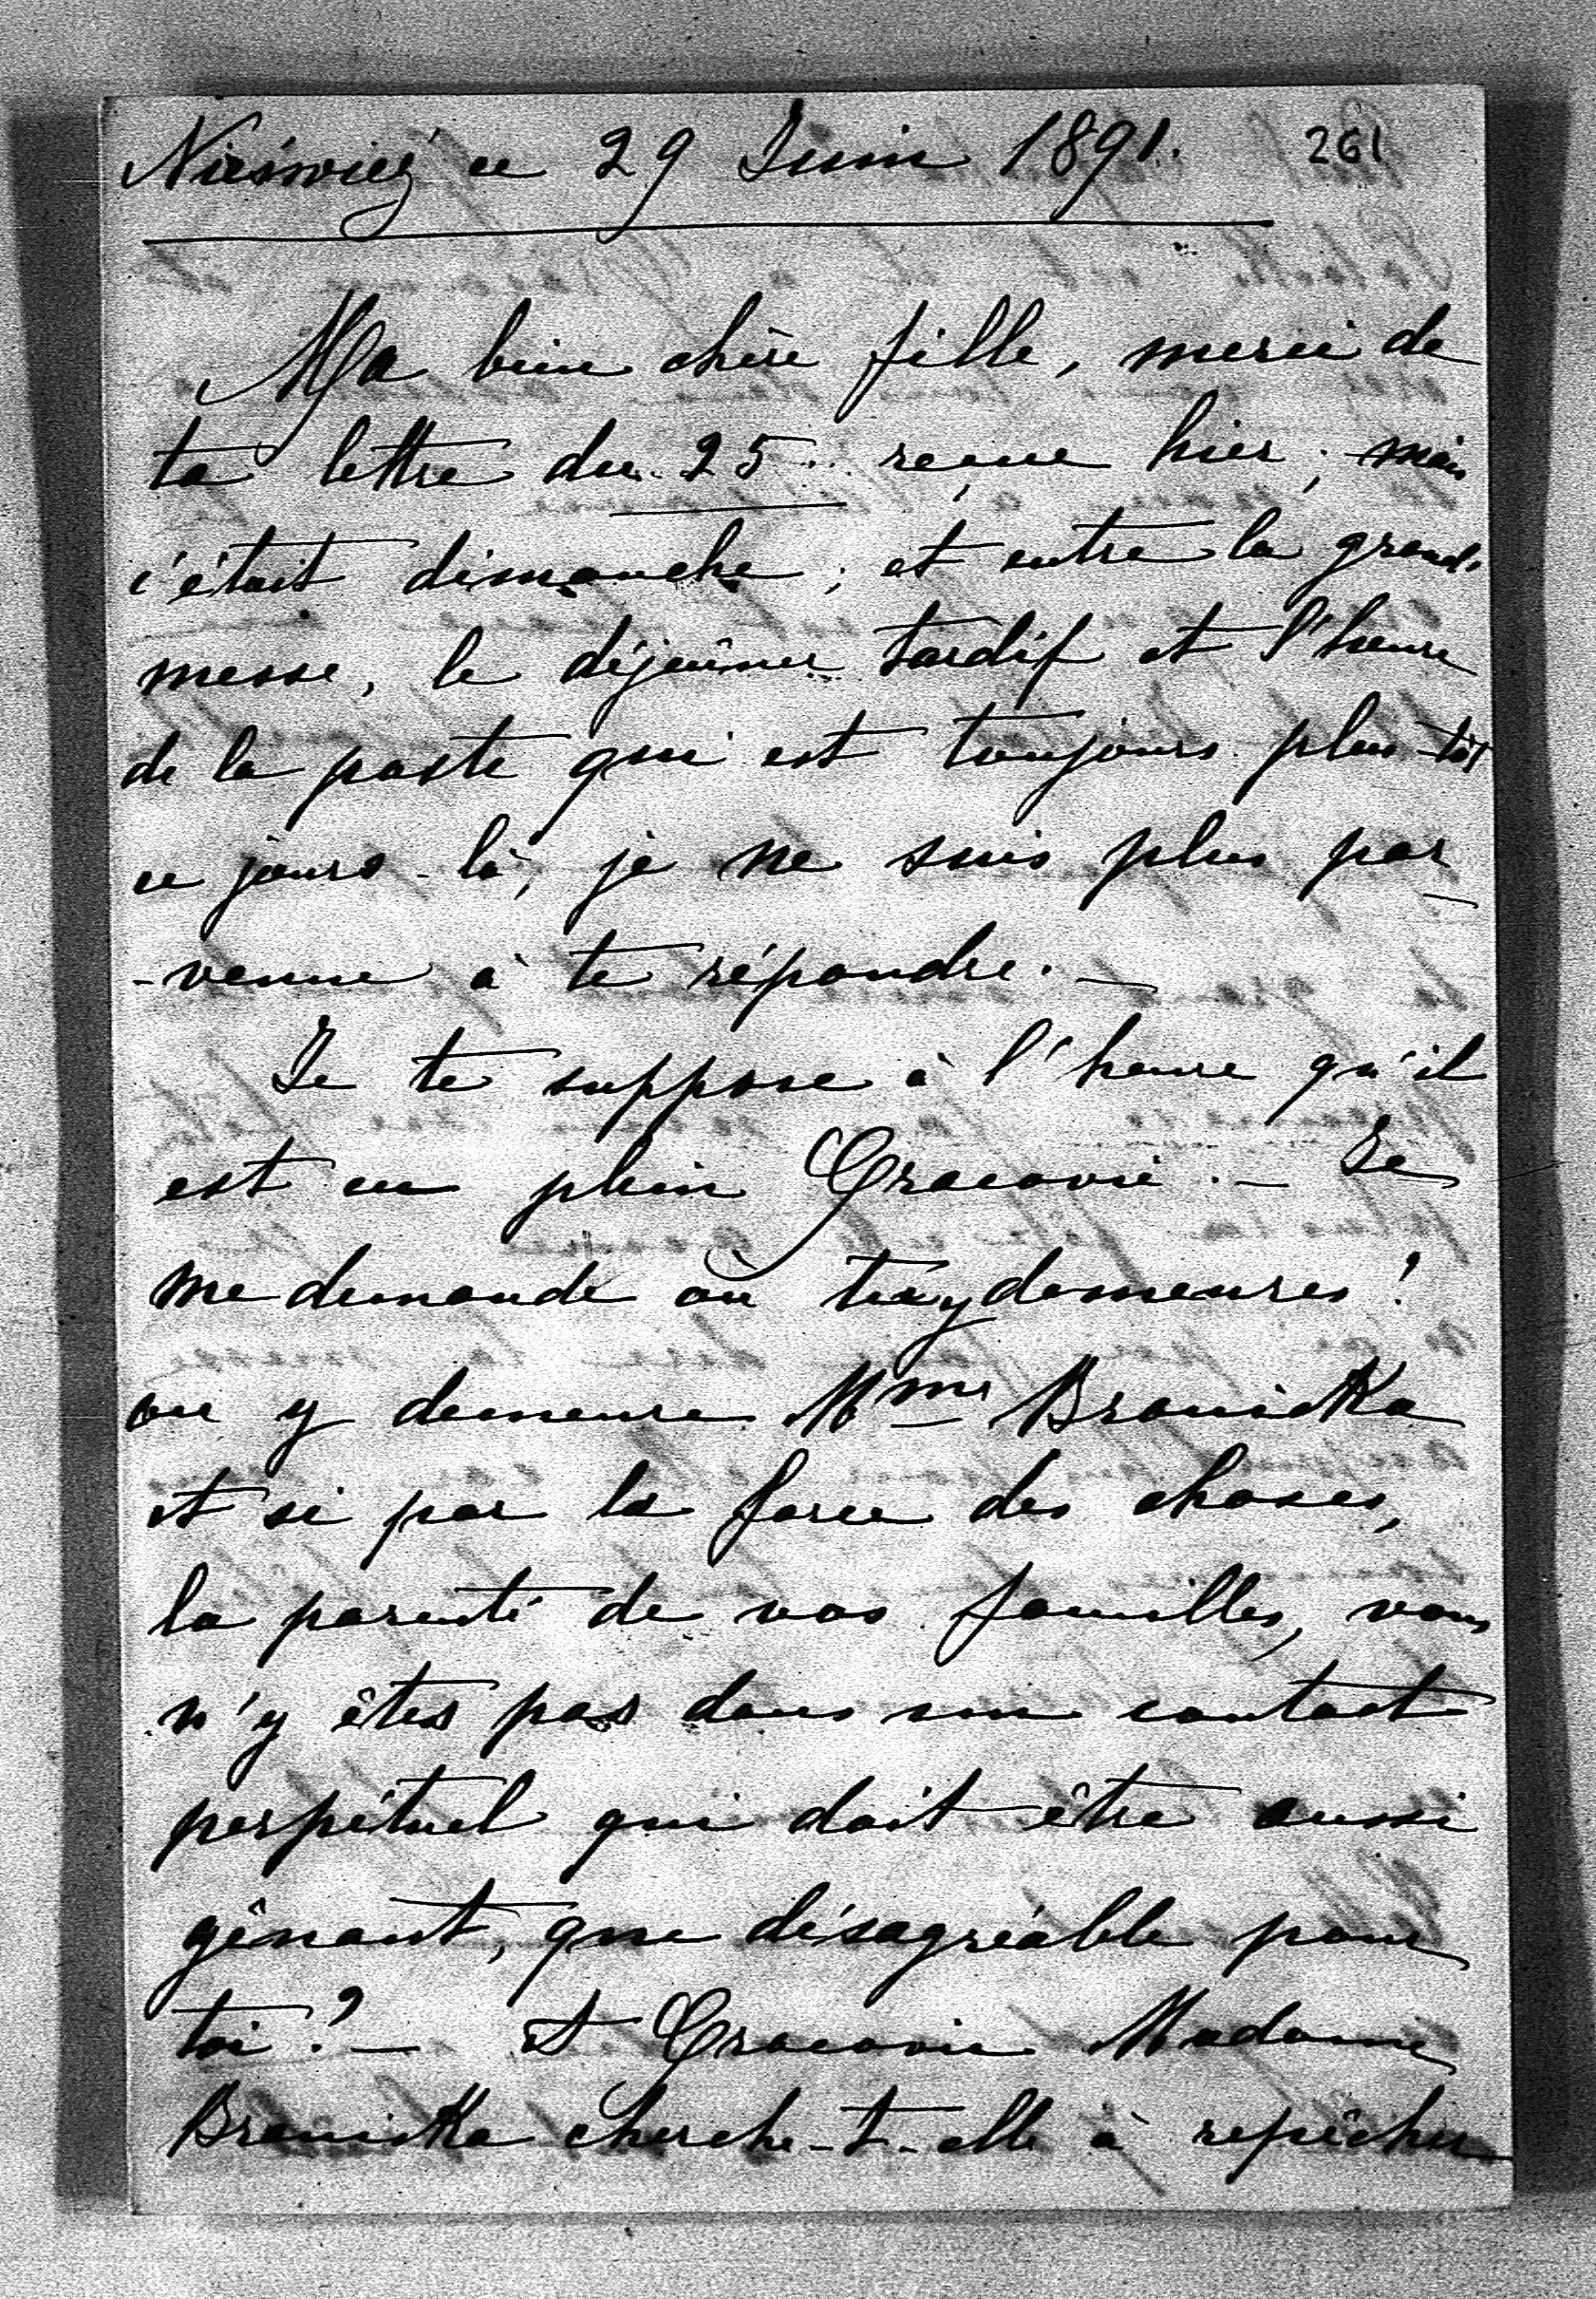 Nieśwież ce 29 Juin 1891. 261
Ma bien chère fille, merci de
ta lettre du 25 reçue hier, mais
c'était dimanche; et entre la grand'
messe, le déjeûner tardif et l'heure
de la poste qui est toujours plus tôt
ce jours-là, je ne suis plus par
-venue à te répondre. —
Je te suppose à l'heure qu'il
est en plein Cracovie. — Je
me demande où tu y demeures!
ou y demeure Mme Branicka
et si par la force des choses,
la parenté de vos familles, vous
n'y êtes pas dans un contact
perpétuel qui doit être aussi
gênant, que désagréable pour
toi? — A Cracovie Madame
Branicka cherche-t-elle à repêcher